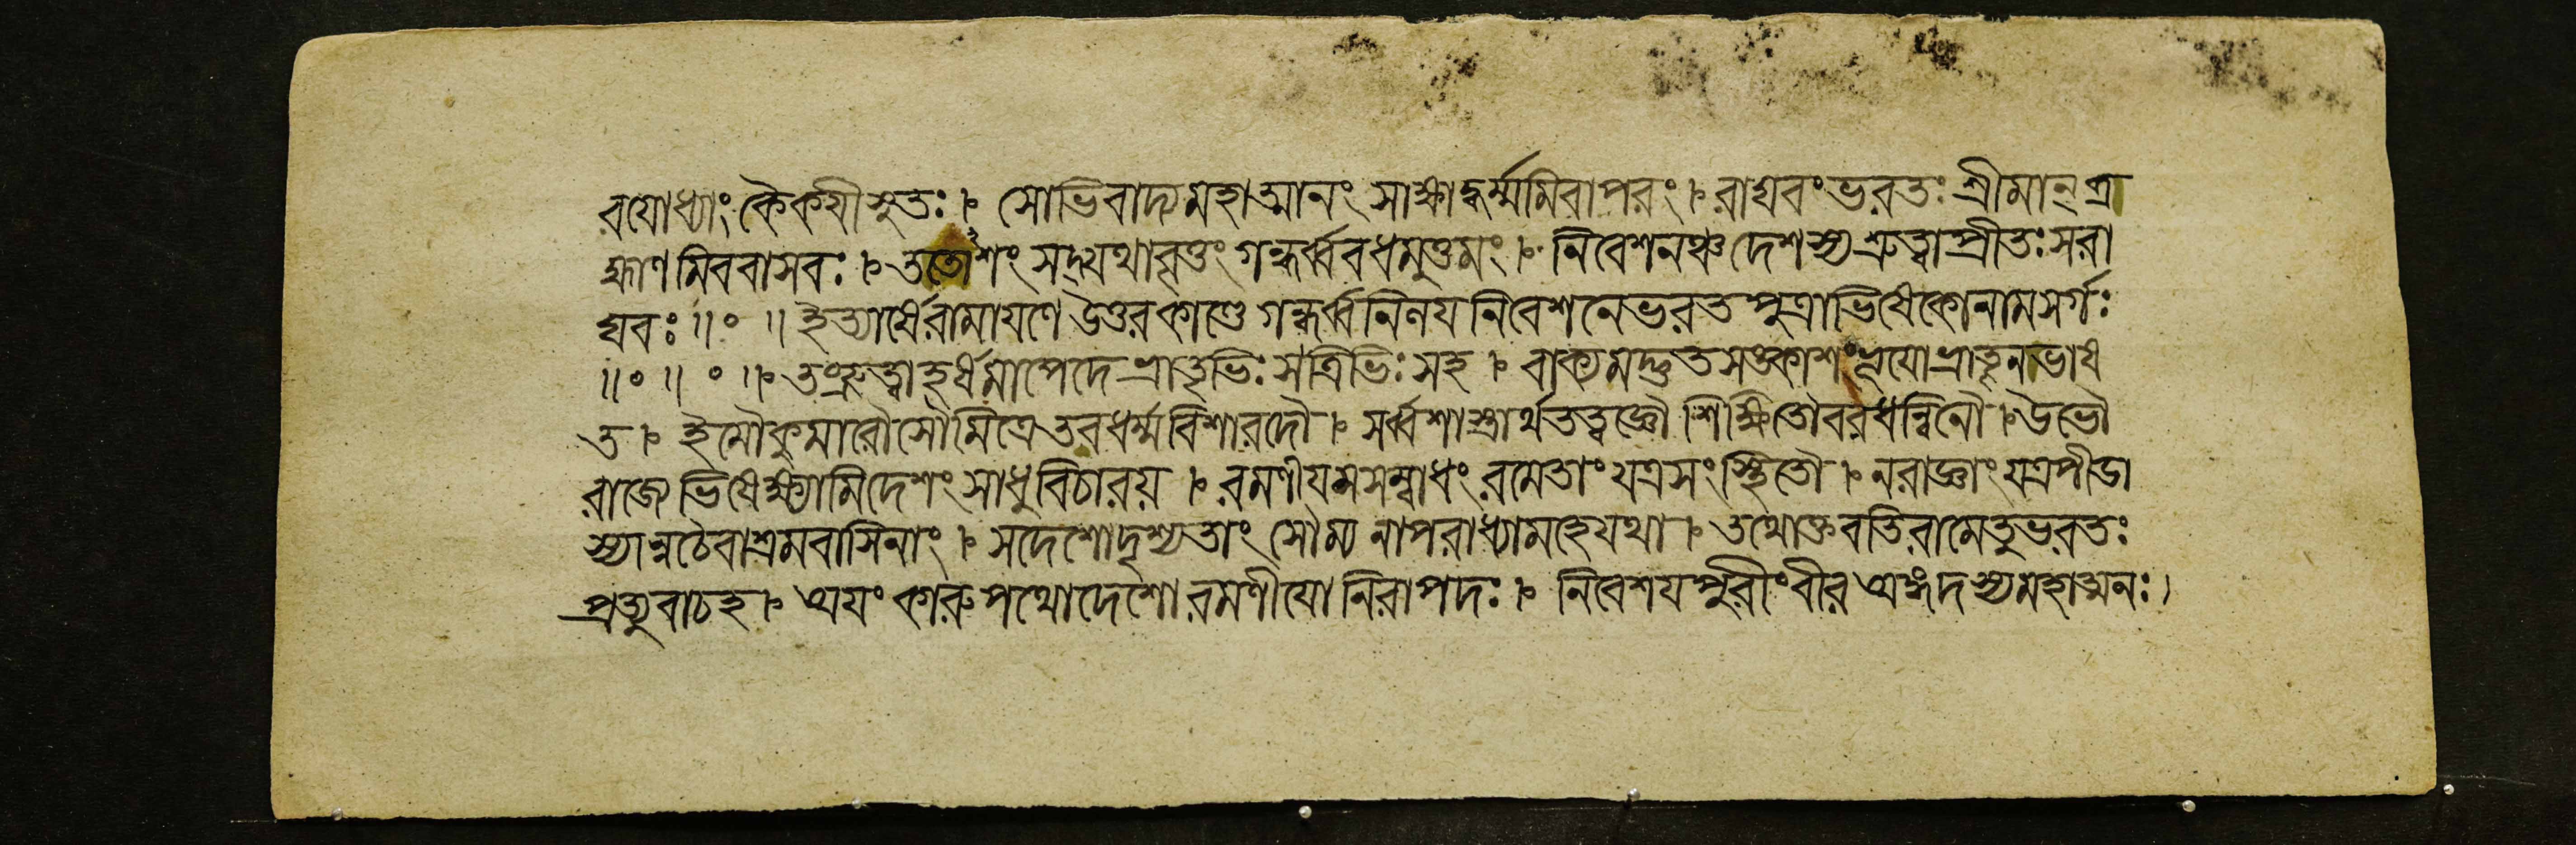 রযোধ্যাং কৈকযীসুতঃ । সোভিবাদ্য মহাত্মানং সাক্ষাদ্ধর্ম্মমিবাপরং । রাঘবং ভরতঃ শ্রীমান্ ব্র
হ্মাণমিববাসবঃ । ততোশংসদ্যথাবৃত্তং গন্ধর্ব্ববধমুত্তমং । নিবেশনঞ্চ দেশস্য শ্রুত্বা প্রীতঃ সরা
ঘবঃ ॥ ० ॥ ইত্যার্ষেরামাযণে উত্তরকাণ্ডে গন্ধর্ব্ব নিবেশনেভরতপুত্রাভিষেকোনামসর্গঃ
॥ ० ॥ ० ॥ তংশ্রুত্বাহর্ষমাপেদে ভ্রাতৃভিঃ সত্রিভিঃ সহ । বাক্যমদ্ভুতসঙ্কাশং ভ্রাতৄনভাষ
ত । ইমৌকুমারৌসৌমিত্রে তবধর্ম্মবিশারদৌ । সর্ব্বশাস্ত্রার্থতত্ত্বজ্ঞৌ শিক্ষিতৌবরধন্বিনৌ । উভৌ
রাজ্যেভিষেক্ষ্যামিদেশং সাধুবিচারয় । রমণীযমসম্বাধং রমেতাং যত্রসংস্থিতৌ । নরাজ্ঞাং যত্রপীডা
স্যান্নচৈবাশ্রমবাসিনাং । সদেশোদৃশ্যতাং সৌম্য নাপরাধ্যামহেযথা । তথোক্তবতিরামেতুভরতঃ
প্রত্যুবাচহ । অযং কারুপথোদেশো রমণীযো নিরাপদঃ । নিবেশযপুরীং বীর অঙ্গদস্যমহাত্মনঃ ।